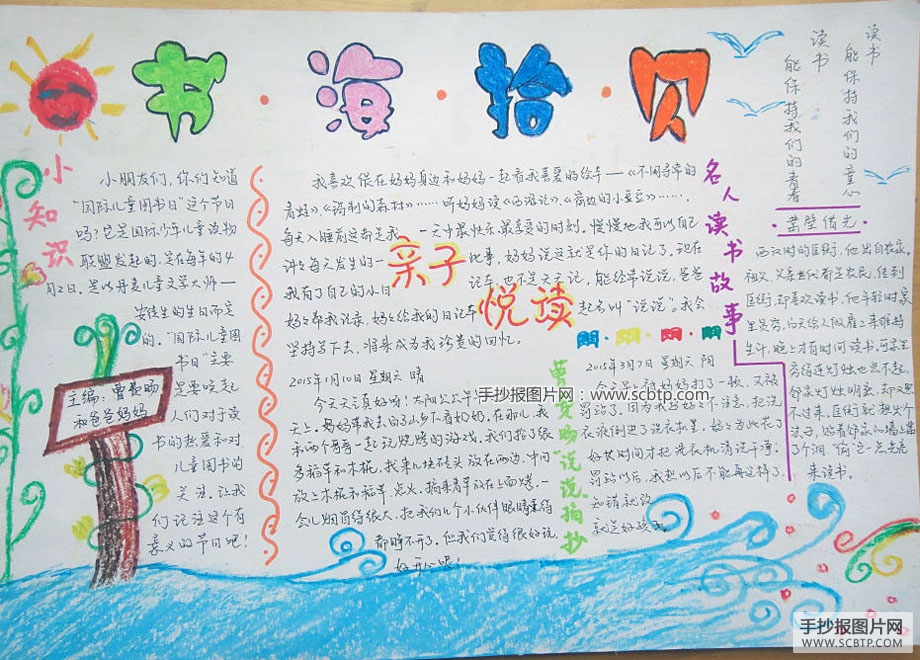 书·海·拾·贝
读书
能保持我们的童心
读书
能保持我们的青春
小知识
小朋友们,你们知道
“国际儿童图书日”这个节日
吗?它是国际少年儿童读物
联盟发起的,是在每年的4
月2日,是以丹麦儿童文学大师—
安徒生的生日而定
的。“国际儿童图
书日”主要
是要唤起
人们对于读
书的热爱和对
儿童图书的
关注,让我
们记注这个有
意义的节日吧!
主编:曹
和爸爸妈妈
亲子
悦读
我喜欢偎在妈妈身边和妈妈一起看我喜爱的绘本—《不同寻常的
青蛙》、《讲到的森林》……听妈妈读《西游记》、《窗边的小豆豆》……
每天入睡前这都是我一天中最快乐最享受的时刻。慢慢地我可以自己
讲讲每天发生的一些事,妈妈说这就是你的日记了。现在
我有了自己的小日记本,也不是天天记,能经常说说,爸爸
妈妈帮我记录,妈妈给我的日记本起名叫“说说”,我会
坚持写下去,将来成为我珍贵的回忆。
曹 说说摘抄
2015年1月10日 星期六 晴
今天天气真好呀!太阳公公早
天上。妈妈带我去
和两个哥哥一起玩烧烤的游戏,我们捡了很
多稻草和木棍,找来几块砖头放在两边,中间
放上木棍和稻草,点火,摘来青菜放在上面烤,一
会儿烟冒得很大,把我们几个小伙伴眼睛熏得
都睁不开了,但我们觉得很好玩,
好开心呢!
2015年3月7日 星期六 阴
今天早上被妈妈打了一顿,又被
罚站了。因为我
衣液倒进了洗衣机里,妈妈为此花了
好长时间才把洗衣机清洗干净。
罚站以后,我想以后不能再这样了,
知错就改
就是好孩子。
名人读书故事
·凿壁借光·
西汉时的匡衡,他出自农家,
祖父、父亲世代都是农民,传到
匡衡,却喜欢读书。他年轻时家
里贫穷,白天给人做雇工来维持
生计,晚上才有时间读书。可家里
穷得连灯烛也点不起。
邻家灯烛明亮,却又照
不过来。匡衡就想出个
法子,贴着邻家的墙上凿
了个洞,“偷”它一点光亮
来读书。
手抄报图片网:www.scbtp.com
手抄报图片网
WWW.SCBTP.COM